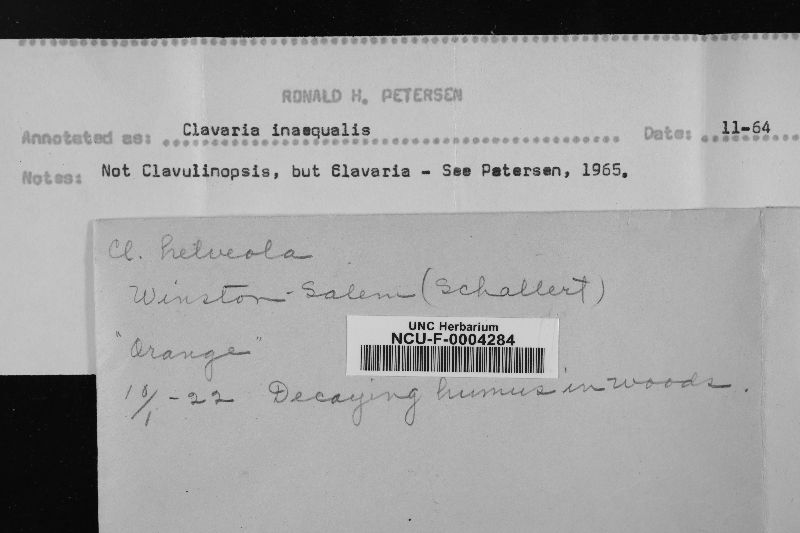 RONALD H. PETERSEN
Annotated as: Clavaria inaequalis Date: 11-64
Notes: Not Clavulinopsis, but Clavaria - See Petersen, 1965.
Cl. helveola
Winston-Salem (Schallert)
"Orange"
UNC Herbarium
NCU-F-0004284
10/1-22 Decaying humus in woods.